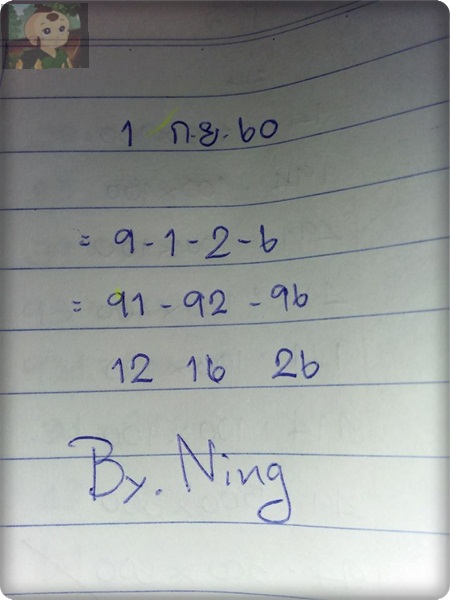 1 ก.ย. 60
= 9-1-2-6
= 91 - 92 - 96
12 16 26
By. Ning